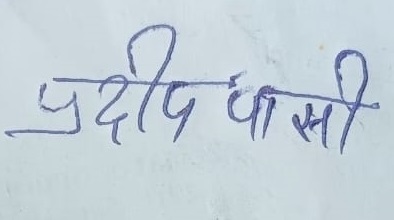 प्रदीप पासी